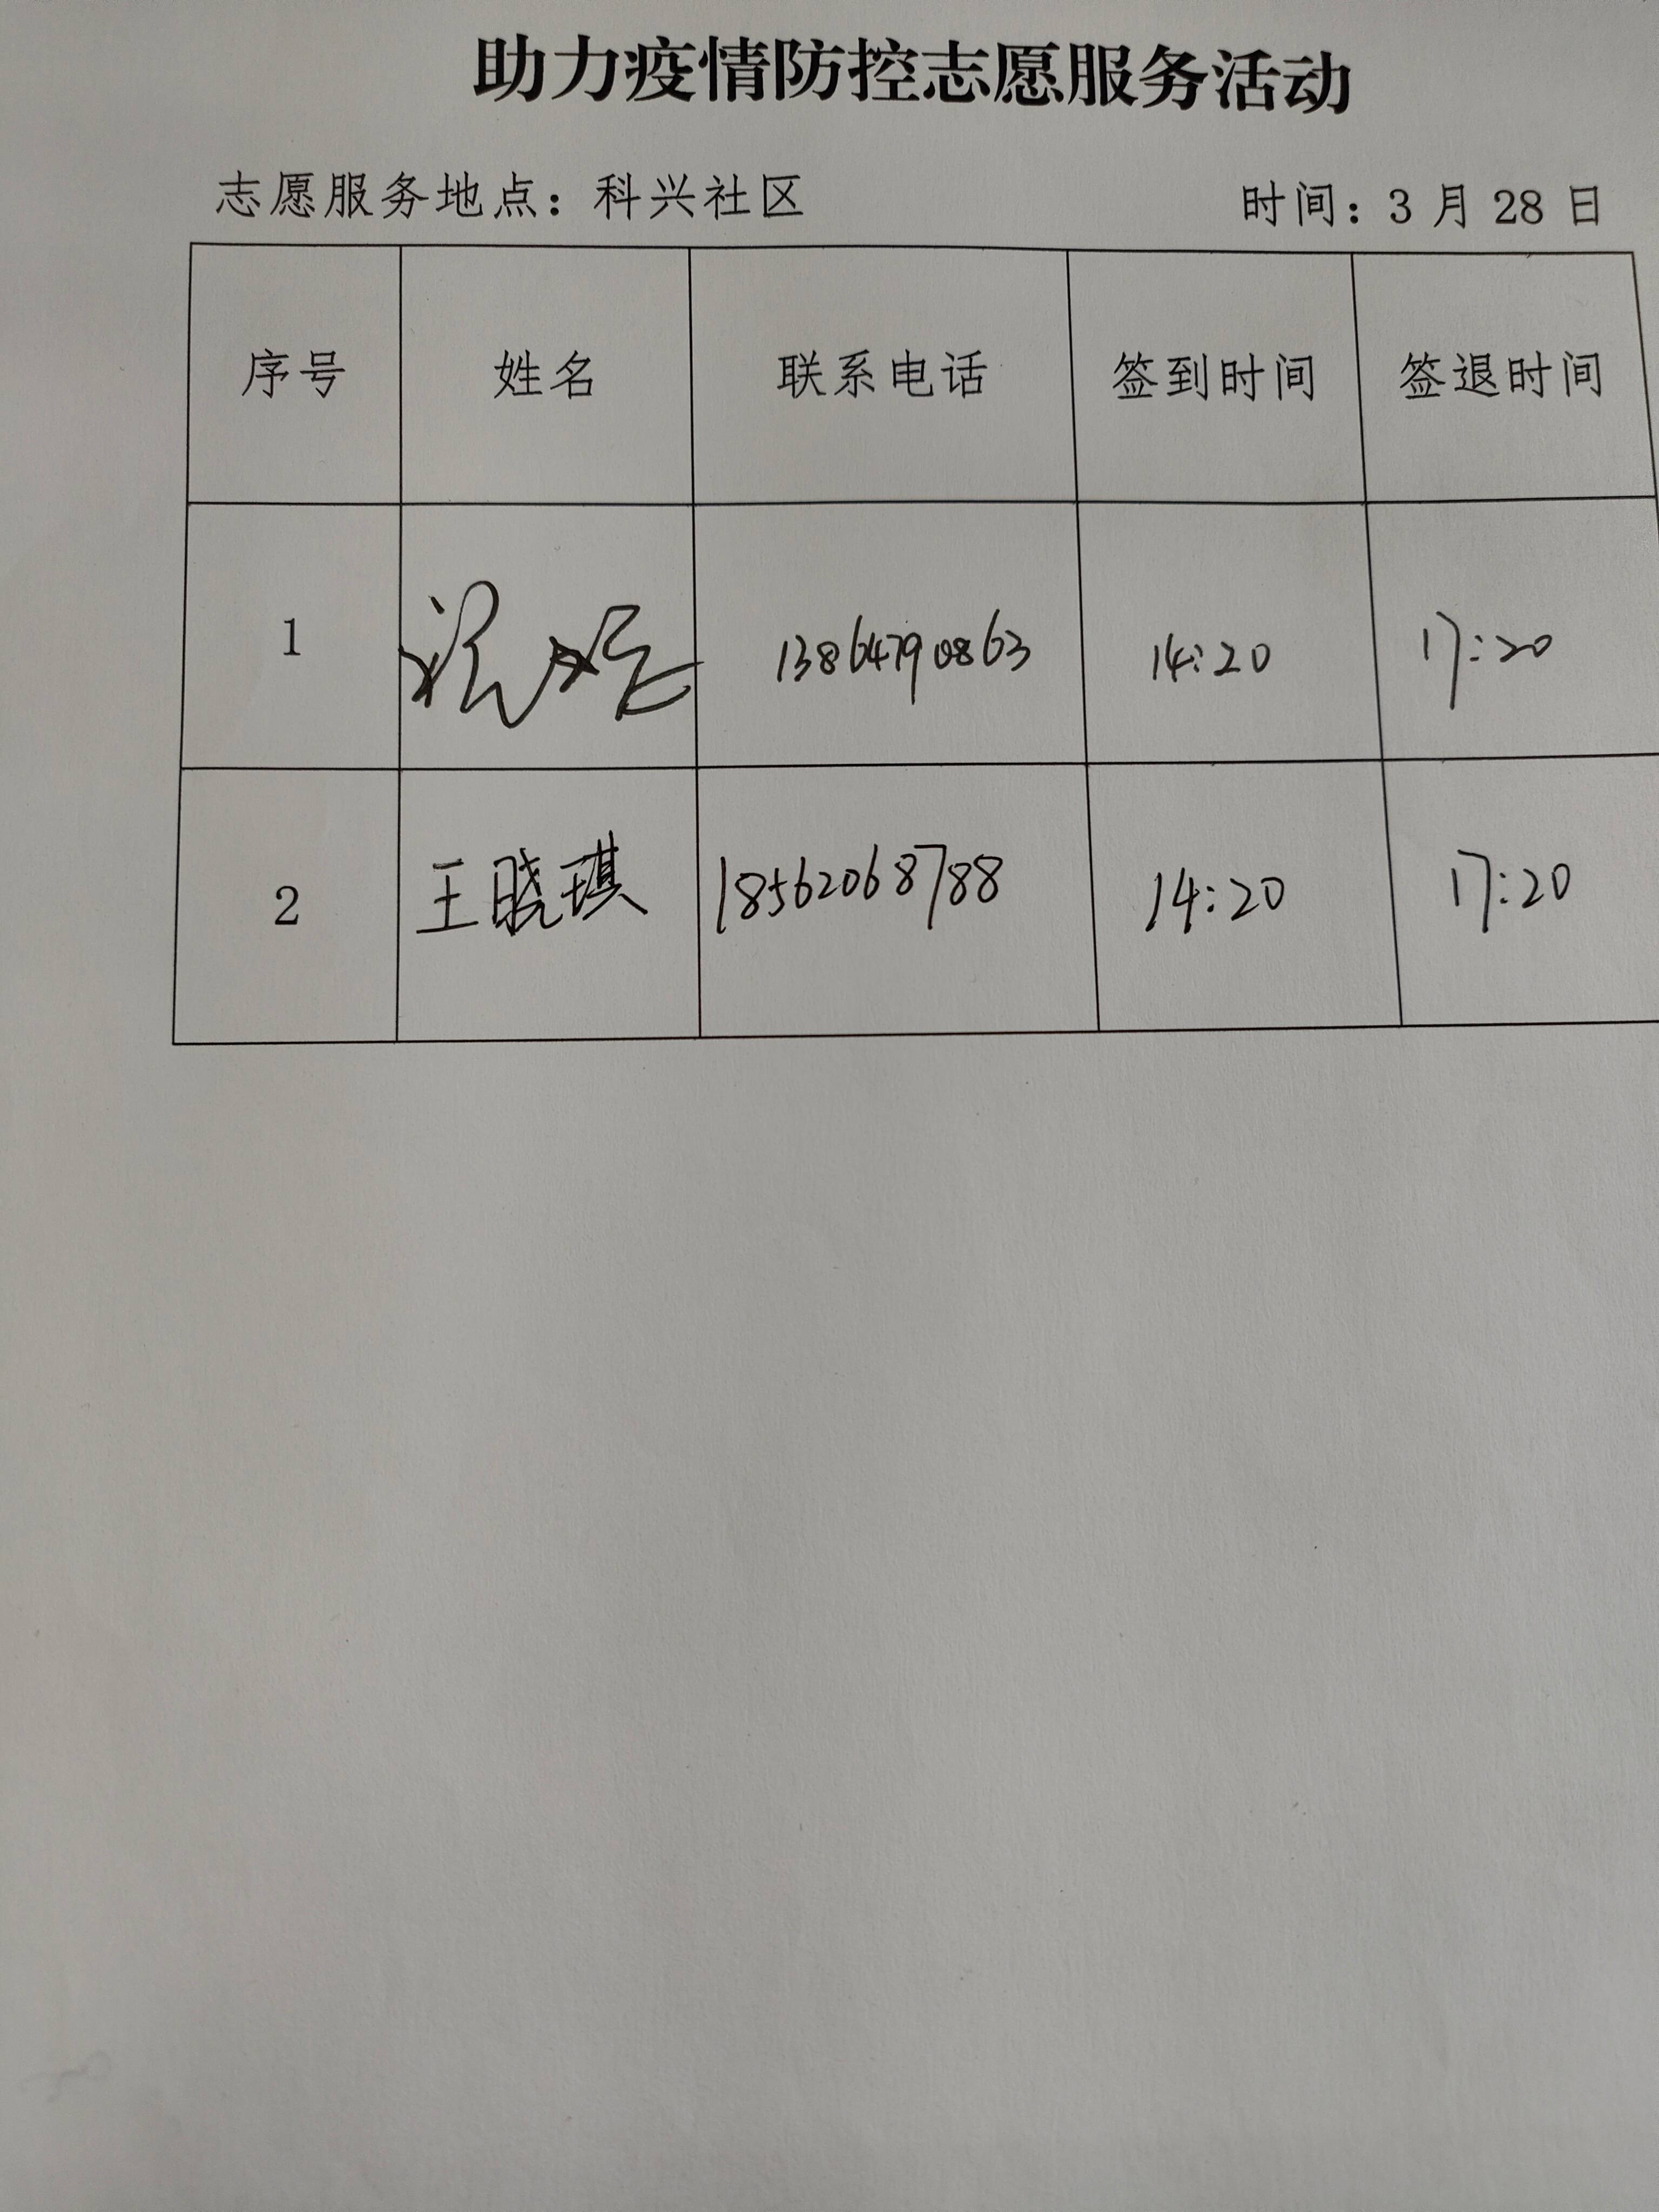 助力疫情防控志愿服务活动
志愿服务地点：科兴社区 时间：3 月 28 日
序号 姓名 联系电话 签到时间 签退时间
1 13864790863 14:20 17:20
2 王晓琪 18562068788 14:20 17:20